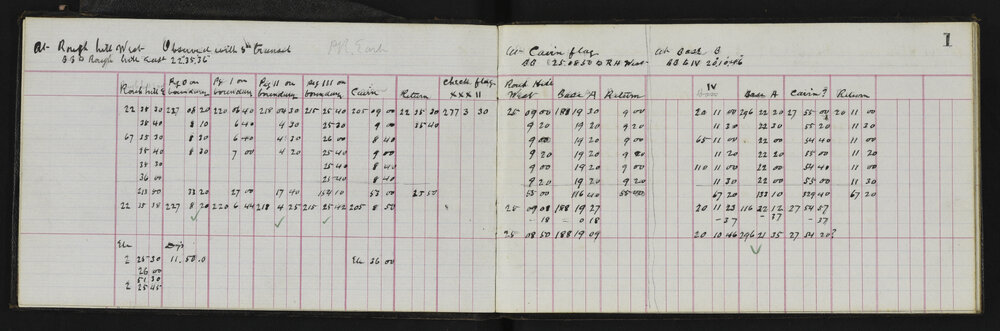 At Rough hill West Observed with 5" transit
BB Rough hill East 22.35.35
Rough hill E Peg 0 on boundary Peg I on boundary Peg II on boundary Peg III on boundary Cairn Return Check flag XXXII
22 34 30 227 08 20 220 06 40 218 04 30 215 25 40 205 09 00 22 35 30 277 3 30
38 40 8 10 6 40 4 30 25 30 9 00 35 40
67 35 30 8 20 6 40 4 30 26 00 8 40
35 40 8 30 7 00 4 20 25 40 9 00
34 30 25 40 8 40
36 00 25 40 8 40
213 50 33 20 27 00 17 40 154 10 53 00
22 35 38 227 8 20 220 6 44 218 4 25 215 25 42 205 8 50
Ele Dip
2 25 30 11.50.0 Ele 36 00
26 00
51 30
2 25 45
1
At Cairn flag
BB 25.08.50 R H West
Rough Hill West Base A Return
25 09 00 188 19 30 9 00
9 20 19 20 9 20
9 00 19 20 9 00
9 20 19 20 9 20
9 00 19 20 9 00
9 20 19 20 9 20
55 00 116 40 55 00
25 09 08 188 19 27
- 18 - 0 18
25 08 50 188 19 09
At Base B
BB IV 20.10.46
IV Base A Cairn? Return
20 11 00 296 22 20 27 55 00 20 11 00
11 30 22 30 55 20 11 30
65 11 00 22 00 54 40 11 00
11 20 22 20 55 00 11 20
110 11 00 22 00 54 40 11 00
11 30 22 00 55 00 11 30
67 20 133 10 329 40 67 20
20 11 23 116 22 12 27 54 57
- 37 - 37 - 37
20 10 46 296 21 35 27 54 20?